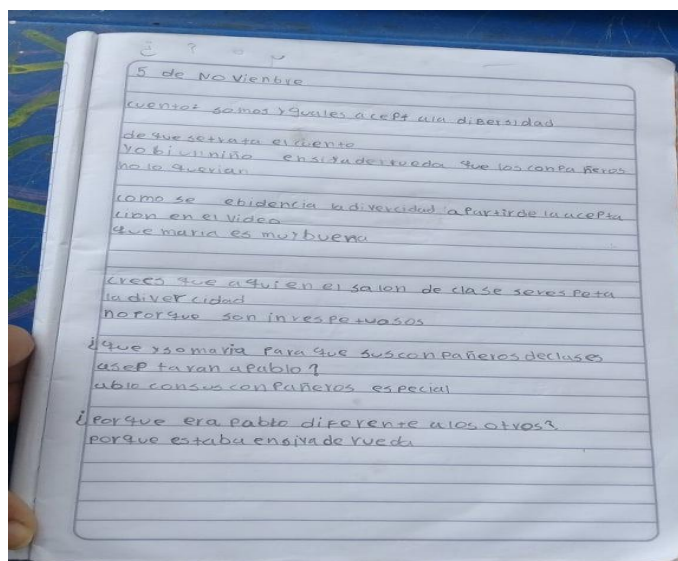 ¿ ?
5 de NoVienbre
cuentos somos yguales acept ala diBersidad
de que setrata el cuento
Yo bi un niño ensiyaderrueda que los conpa ñeros
no lo querian
como se ebidencia la divercidad apartirde la acepta
cion en el video
que maria es muy buena
crees que aquien el salon de clase seres Peta
la diver cidad
no Por que son inrespetuosos
¿que yso maria Para que suscon Pañeros declases
asep taran aPablo?
ablo consus con Pañeros especial
¿Porque era Pablo diFerente alos otros?
Porque estaba ensiyade rueda